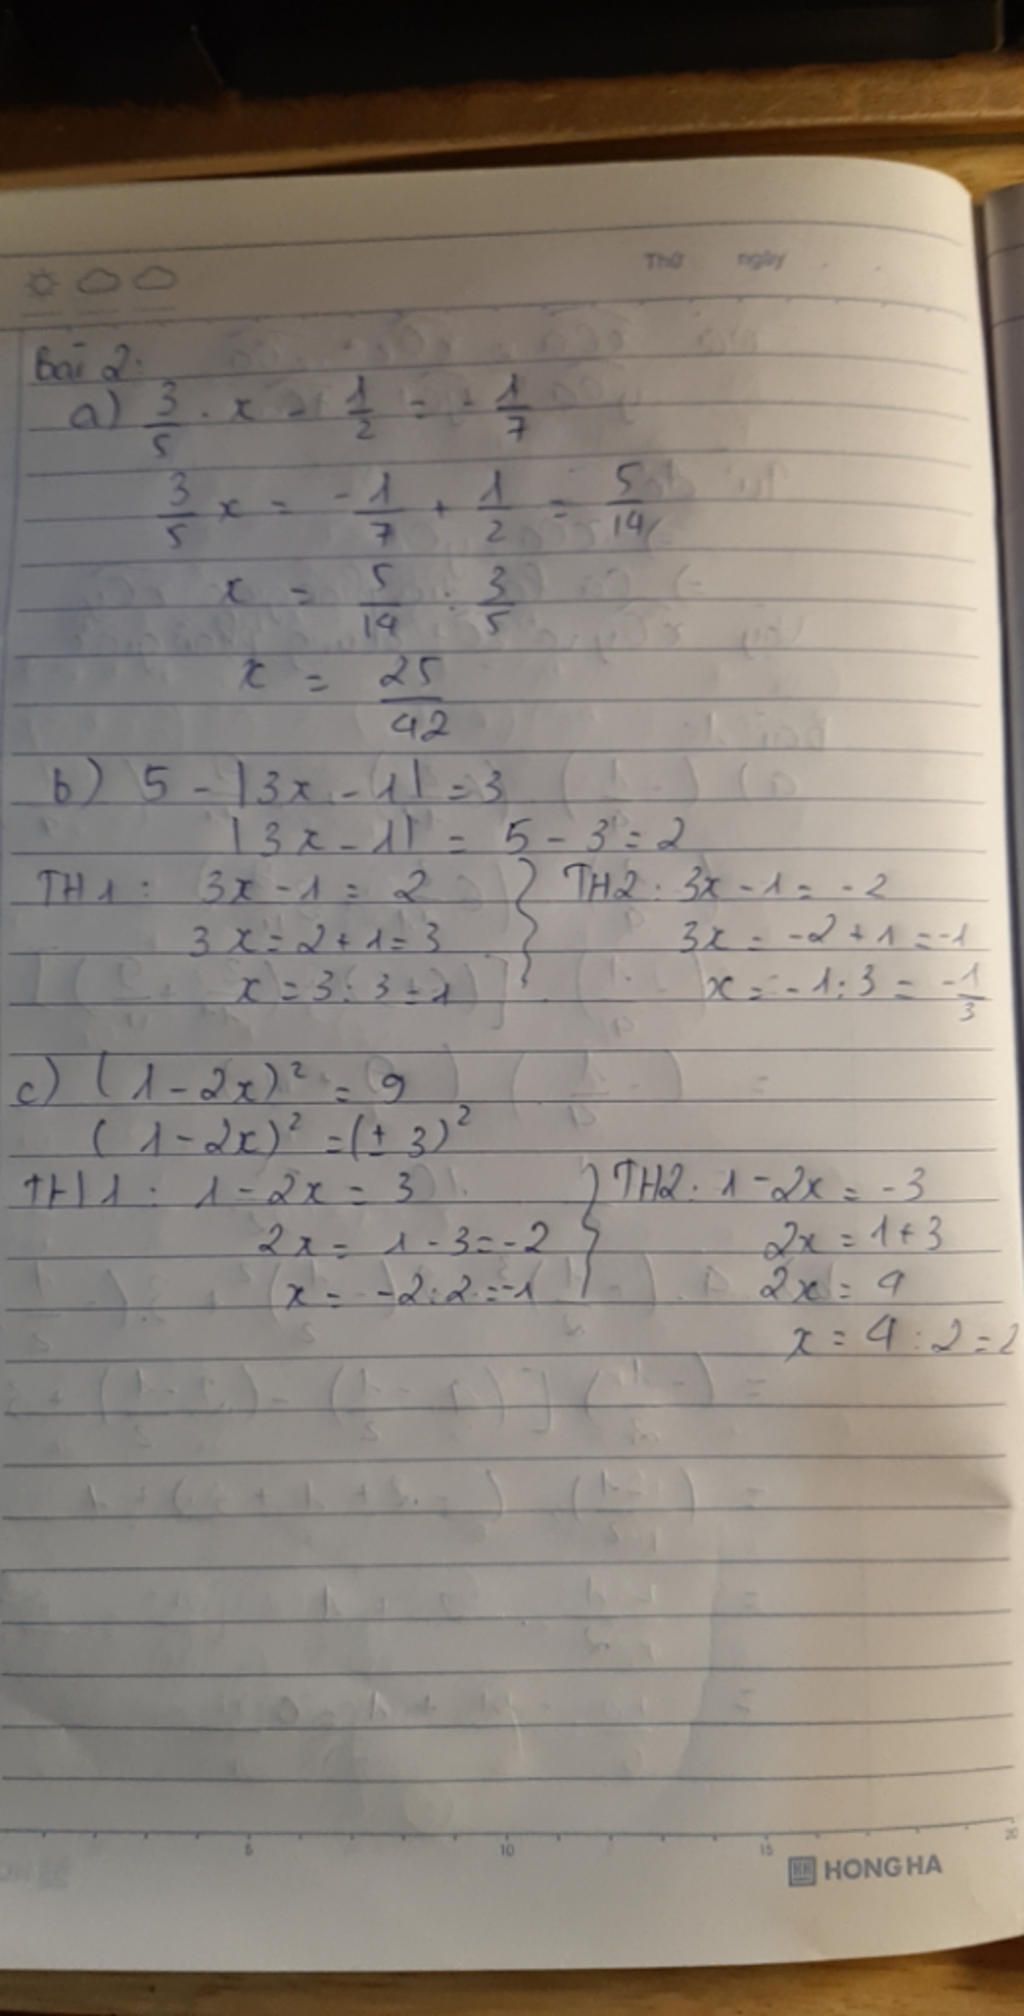 Thứ ngày
Bài 2:
a) 3/5 . x - 1/2 = - 1/7
3/5 x = -1/7 + 1/2 = 5/14
x = 5/14 : 3/5
x = 25/42
b) 5 - |3x - 1| = 3
|3x - 1| = 5 - 3 = 2
TH1: 3x - 1 = 2 } TH2: 3x - 1 = -2
3x = 2 + 1 = 3 3x = -2 + 1 = -1
x = 3 : 3 = 1 x = -1 : 3 = -1/3
c) (1 - 2x)² = 9
(1 - 2x)² = (± 3)²
TH1: 1 - 2x = 3 } TH2: 1 - 2x = -3
2x = 1 - 3 = -2 2x = 1 + 3
x = -2 : 2 = -1 2x = 4
x = 4 : 2 = 2
5 10 15 20
HH HONG HA